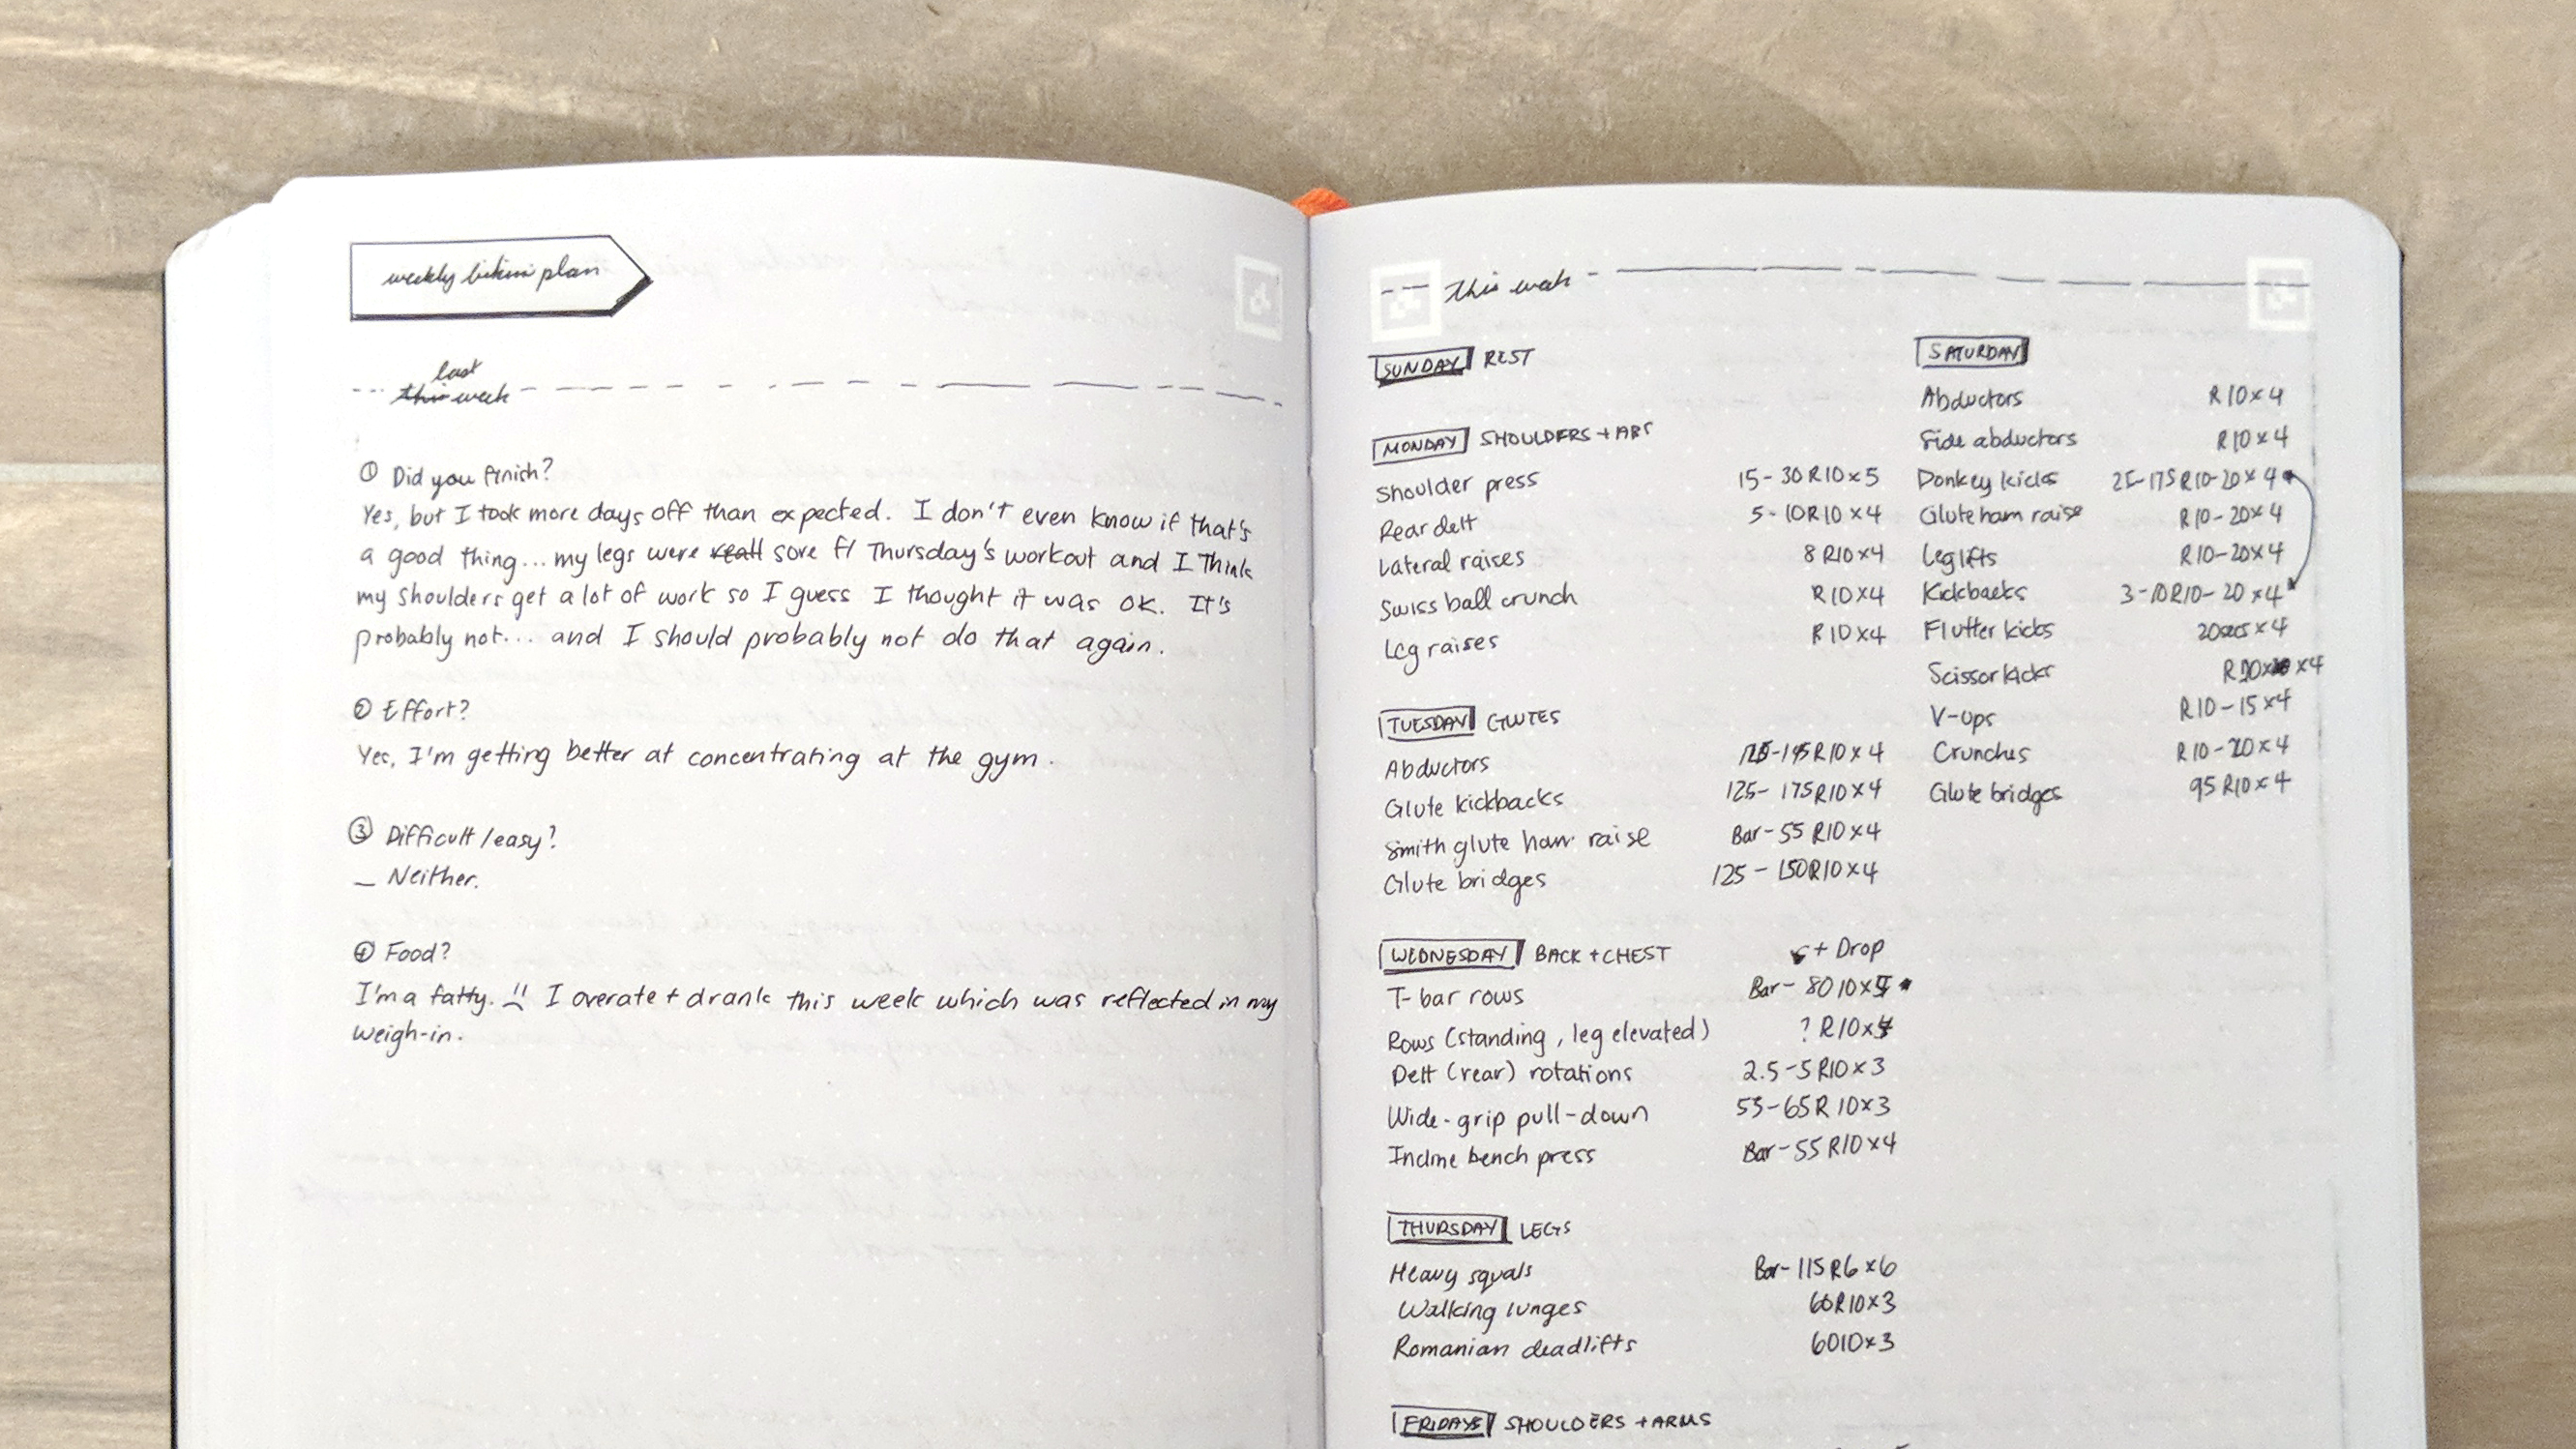 weekly bikini plan
last
this week
① Did you finish?
Yes, but I took more days off than expected. I don't even know if that's
a good thing... my legs were sore f/ Thursday's workout and I think
my shoulders get a lot of work so I guess I thought it was ok. It's
probably not... and I should probably not do that again.
② Effort?
Yes, I'm getting better at concentrating at the gym.
③ Difficult/easy?
— Neither.
④ Food?
I'm a fatty. I overate + drank this week which was reflected in my
weigh-in.
this week
SUNDAY REST
MONDAY SHOULDERS + ABS
Shoulder press 15-30 R10x5
Rear delt 5-10 R10x4
Lateral raises 8 R10x4
Swiss ball crunch R10x4
Leg raises R10x4
TUESDAY GLUTES
Abductors R10x4
Glute kickbacks 125-175 R10x4
Smith glute ham raise Bar-55 R10x4
Glute bridges 125-150 R10x4
WEDNESDAY BACK + CHEST + Drop
T-bar rows Bar-80 10x5
Rows (standing, leg elevated) ? R10x
Delt (rear) rotations 2.5-5 R10x3
Wide-grip pull-down 55-65 R10x3
Incline bench press Bar-55 R10x4
THURSDAY LEGS
Heavy squats Bar-115 R6x6
Walking lunges 60 R10x3
Romanian deadlifts 60 10x3
FRIDAYS SHOULDERS + ARMS
SATURDAY
Abductors R10x4
Side abductors R10x4
Donkey kicks 25-175 R10-20x4
Glute ham raise R10-20x4
Leg lifts R10-20x4
Kickbacks 3-10 R10-20x4
Flutter kicks 20secs x4
Scissor kicks x4
V-ups R10-15x4
Crunches R10-20x4
Glute bridges 95 R10x4